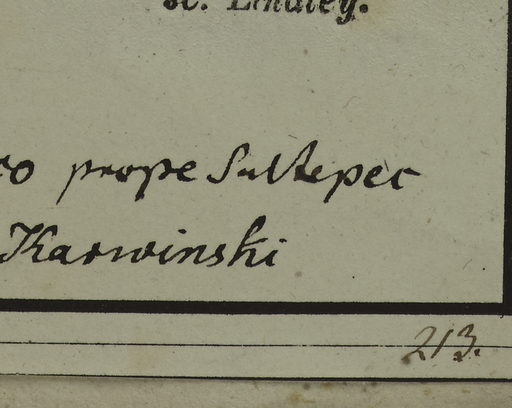 sc. Lindley.
co prope Sultepec
Karwinski
213.